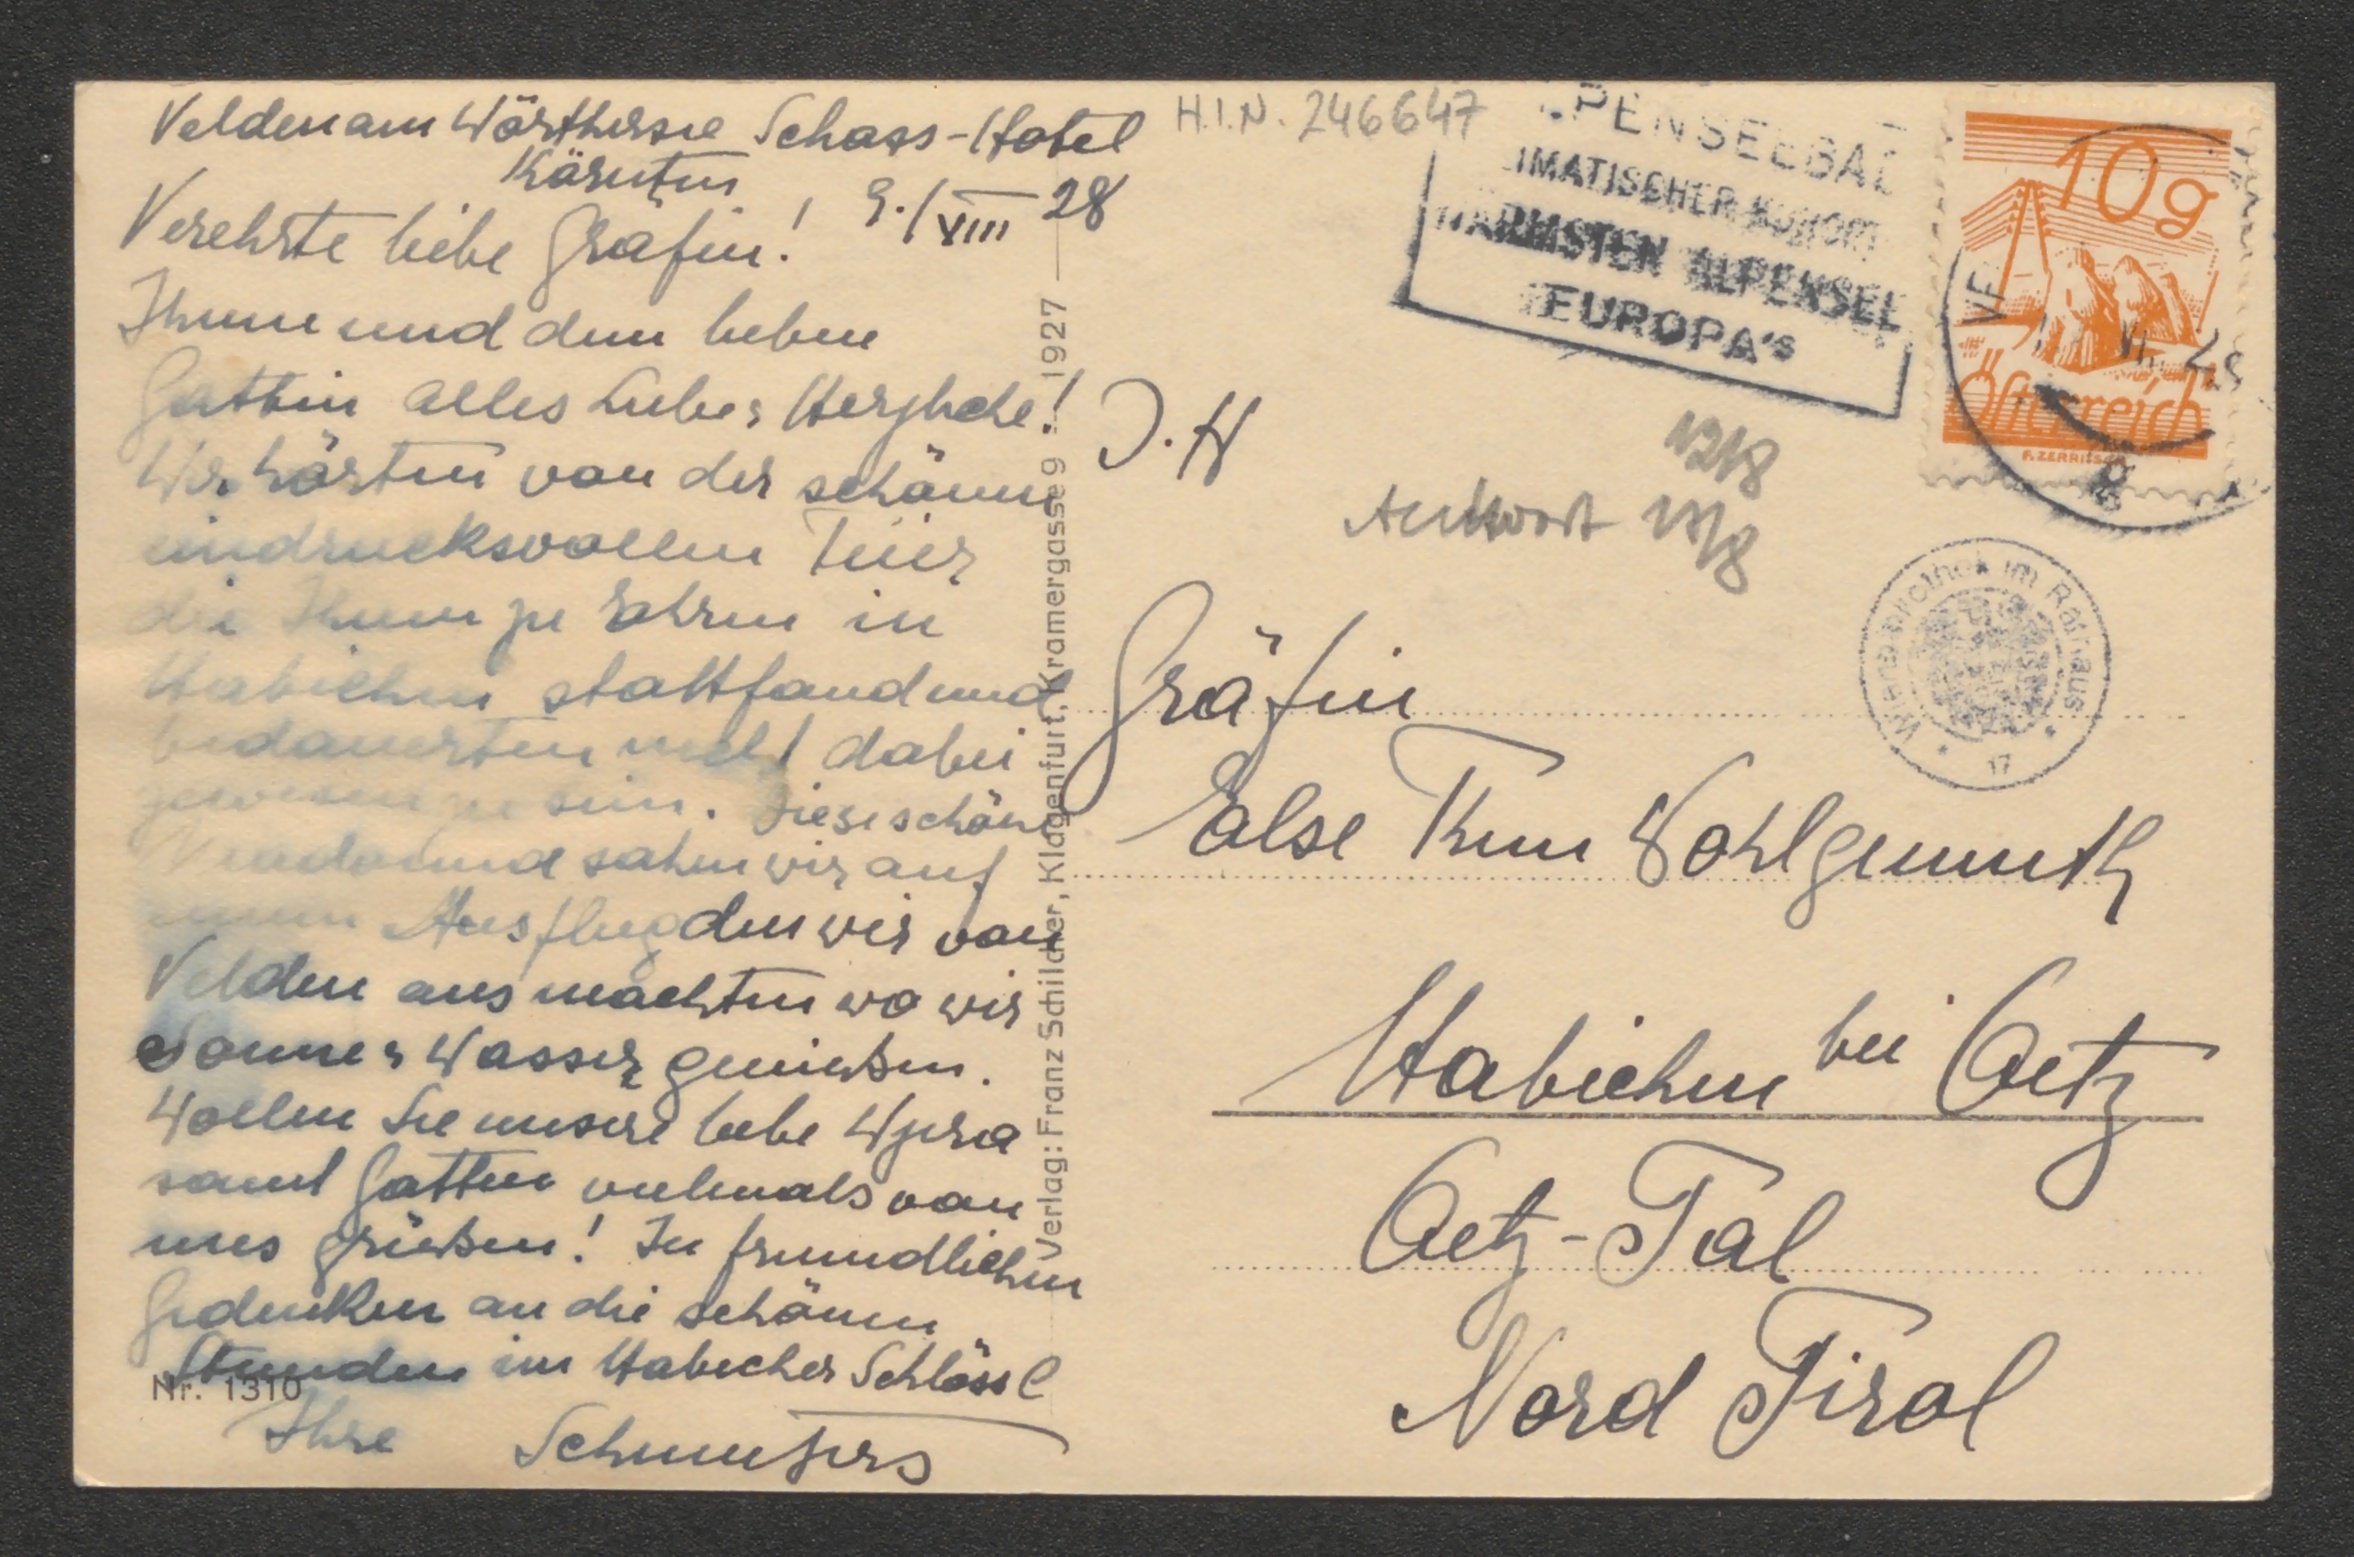 Velden am Wörthersee Schloss-Hotel
Kärnten
9./VIII 28
Verehrte liebe Gräfin!
Ihnen und dem lieben
Gatten alles Liebe, Herzliche!
Wir hörten von der schönen
eindrucksvollen Feier
die Ihnen zu Ehren in
Habichen stattfand und
bedauerten nicht dabei
gewesen zu sein. Diese schöne
sahen wir auf
einem Ausflug den wir von
Velden aus machten wo wir
Sonne, Wasser genießen.
Wollen Sie unsere liebe
samt Gatten vielmals von
uns grüßen! In freundlichen
Gedenken an die schönen
Stunden im Habicher Schlössl
Ihre
Nr. 1310
Verlag: Franz Schilcher, Klagenfurt, Kramergasse 9 1927
H.I.N. 246647
PENSEEBAD
IMATISCHER KURORT
WARMSTEN ALPENSEE
EUROPA's
10g
Österreich
J. H
Antwort
Wienbibliothek im Rathaus
17
Gräfin
Else Thun Wohlgemuth
Habichen bei Oetz
Oetz-Tal
Nord Tirol